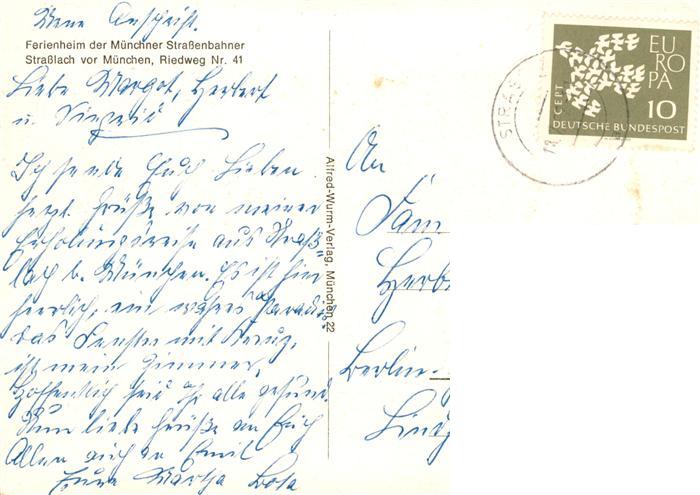 Meine Anschrift.
Ferienheim der Münchner Straßenbahner
Straßlach vor München, Riedweg Nr. 41
Liebe Margot, Herbert
u. Siegrid
Ich sende Euch Lieben
herzl. Grüße von meiner
Erholungsreise aus Straß=
lach b. München. Es ist hier
herrlich, ein wahres Paradis.
das Fenster mit Kreuz,
ist mein Zimmer,
Hoffentlich seid Ihr alle gesund.
Nun liebe Grüße an Euch
Allen auch an Emil
Eure Martha
Alfred-Wurm-Verlag, München 22
An
Fam
Herb
Berlin-
Lind
EUROPA
CEPT
10
DEUTSCHE BUNDESPOST
STRASS